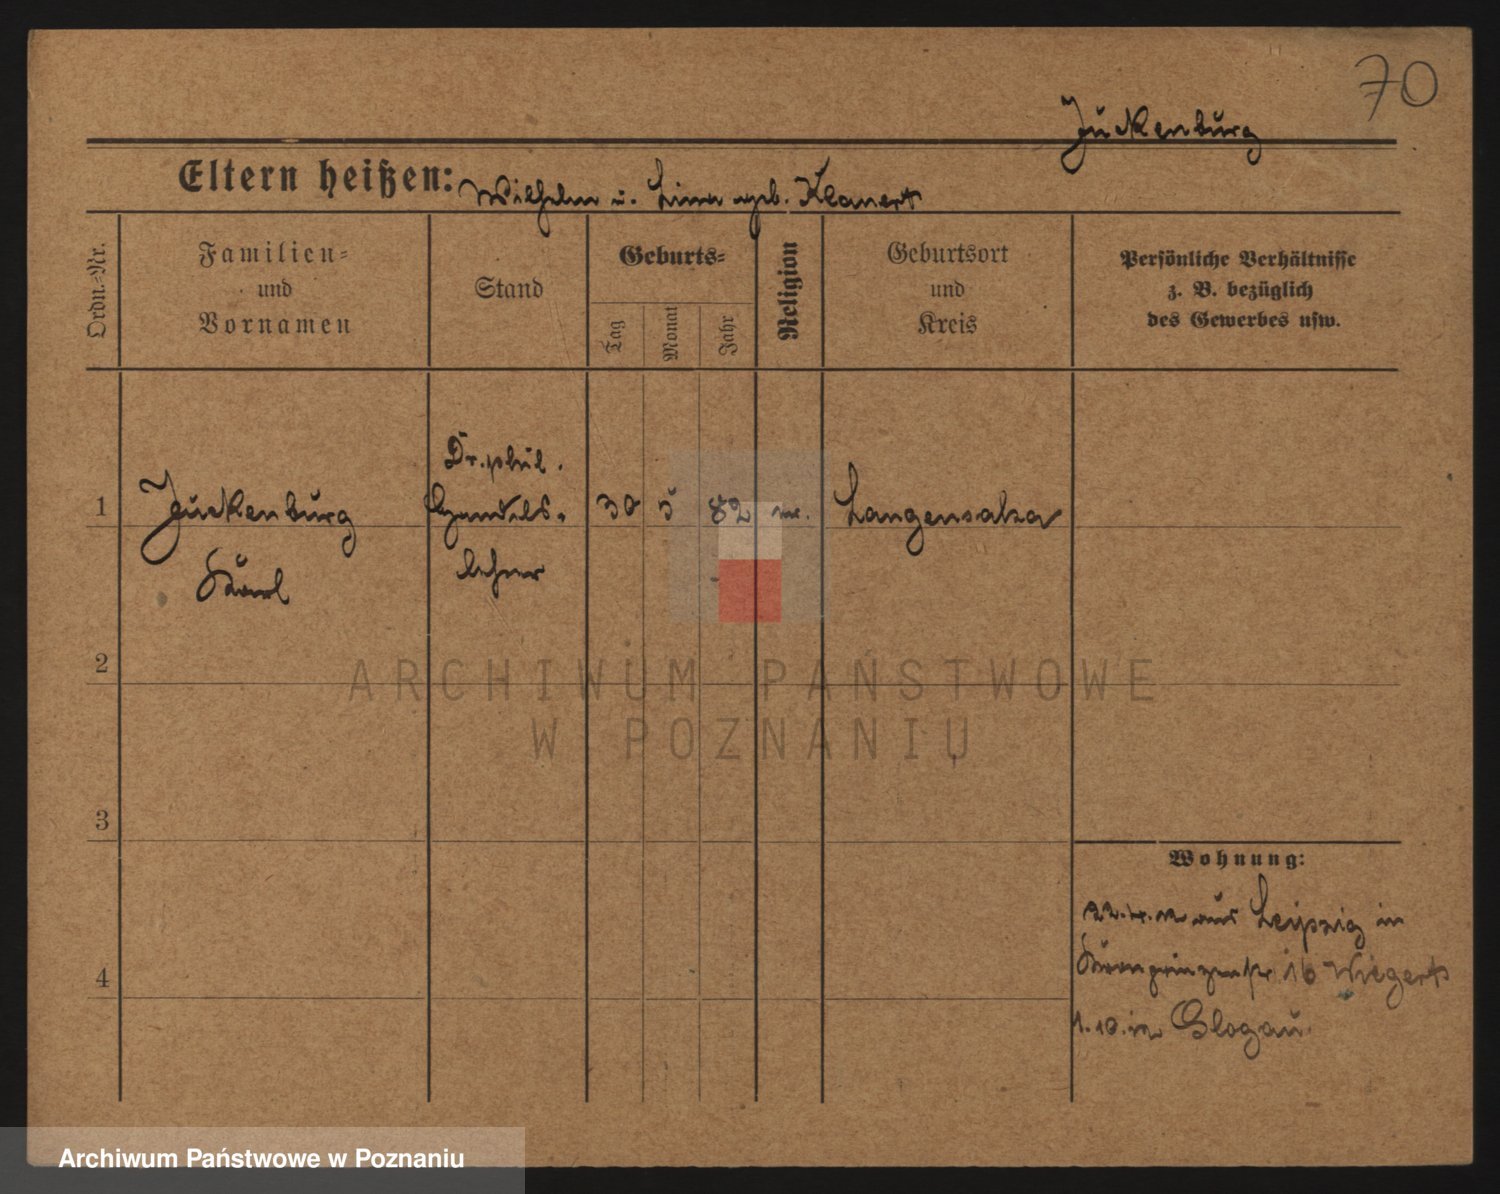 70
Juckenburg
Eltern heißen: Wilhelm u. Lina geb. Klanert
Ordn.-Nr.
Familien-
und
Vornamen
Stand
Geburts-
Tag
Monat
Jahr
Religion
Geburtsort
und
Kreis
Persönliche Verhältnisse
z. B. bezüglich
des Gewerbes usw.
Dr. phil.
1 Juckenburg Handels- 30 5 82 Langensalza
Karl lehrer
2
3
4
Wohnung:
22.4.12 aus Leipzig in
Kronprinzenstr 16 Wiegert
1.10.12 Glogau
ARCHIWUM PAŃSTWOWE
W POZNANIU
Archiwum Państwowe w Poznaniu